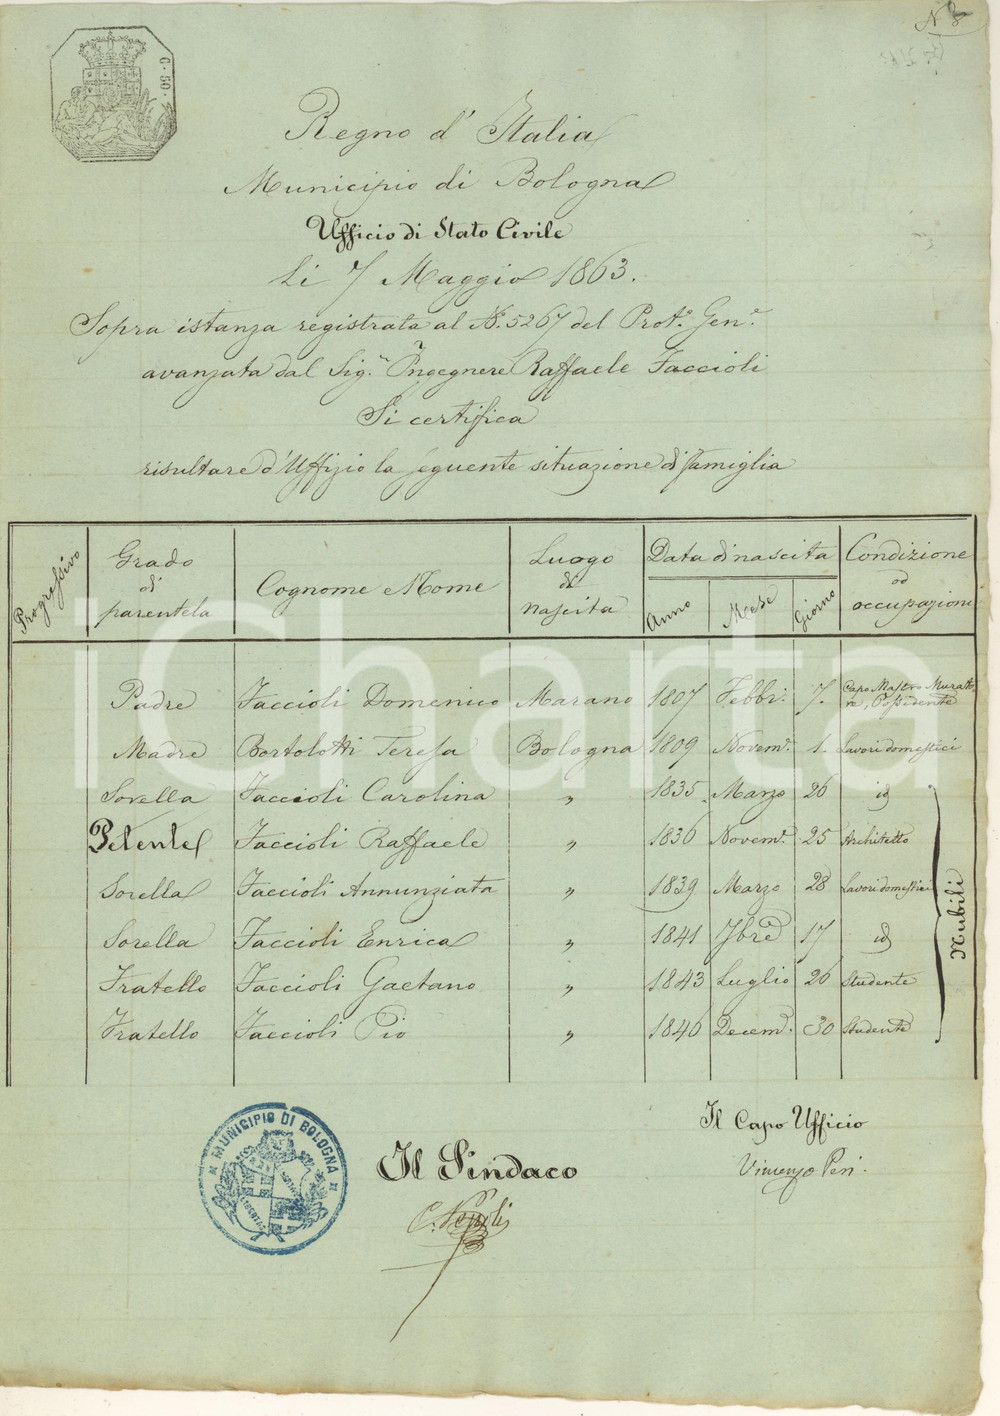 N. 8
C. 50.
Regno d'Italia
Municipio di Bologna
Ufficio di Stato Civile
Li 7 Maggio 1863.
Sopra istanza registrata al N. 5267 del Prot.º Gen.e
avanzata dal Sig.r Ingegnere Raffaele Faccioli
Si certifica
risultare d'Uffizio la seguente situazione di famiglia
Progressivo | Grado di parentela | Cognome e Nome | Luogo di nascita | Data di nascita | Condizione od occupazioni
Anno | Mese | Giorno
Padre | Faccioli Domenico | Marano | 1807 | Febbr. | 7. | Capo Mastro Murato re, Possidente
Madre | Bortolotti Teresa | Bologna | 1809 | Novem.e | 1. | Lavori domestici
Sorella | Faccioli Carolina | " | 1835 | Marzo | 26 | id
Petente | Faccioli Raffaele | " | 1836 | Novem.e | 25 | Architetto
Sorella | Faccioli Annunziata | " | 1839 | Marzo | 28 | Lavori domestici
Sorella | Faccioli Enrica | " | 1841 | 7bre | 17 | id
Fratello | Faccioli Gaetano | " | 1843 | Luglio | 26 | Studente
Fratello | Faccioli Pio | " | 1846 | Decem.e | 30 | Studente
Nubili
iCharta
MUNICIPIO DI BOLOGNA
LIBERTAS
Il Sindaco
C. Pepoli
Il Capo Ufficio
Vincenzo Peri.